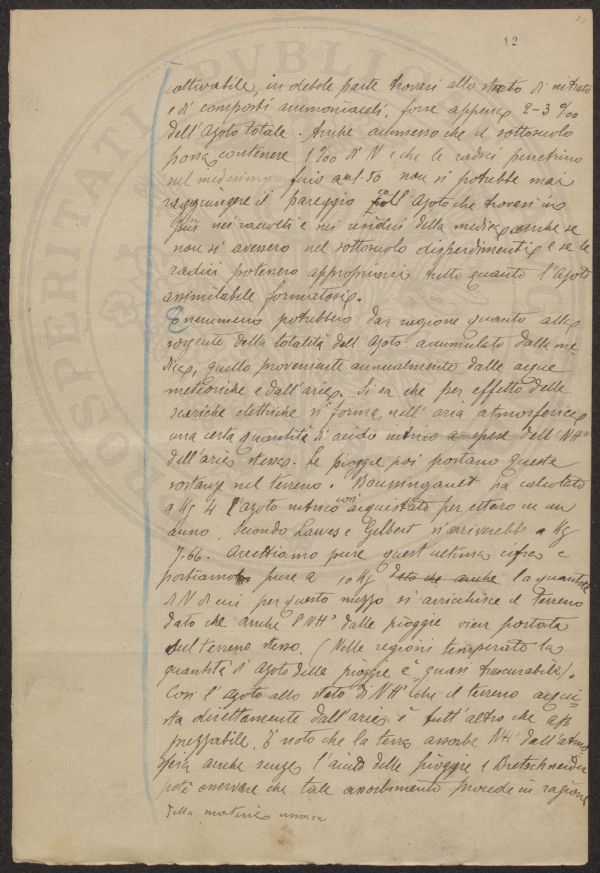 12
coltivabile, in debole parte trovasi allo stato di nitrato
e di composti ammoniacali, forse appena 2-3 ‰
dell'Azoto totale. Anche ammesso che il sottosuolo
possa contenere 1‰ di N e che le radici penetrino
nel medesimo fino a m 1.50 non si potrebbe mai
raggiungere il pareggio coll'Azoto che trovasi in
più nei raccolti e nei residui della medica anche se
non si avessero nel sottosuolo disperdimenti e se le
radici potessero appropriarsi tutto quanto l'Azoto
assimilabile formatosi.
E nemmeno potrebbero dar ragione quanto alla
sorgente della totalità dell'Azoto accumulato dalla me-
dica, quello proveniente annualmente dalle acque
meteoriche e dall'aria. Si sa che per effetto delle
scariche elettriche si forma nell'aria atmosferica
una certa quantità di acido nitrico a spese dell'NH³
dell'aria stessa. Le pioggie poi portano queste
sostanze nel terreno. Boussingault ha calcolato
a Kg 4 l'azoto nitrico così acquistato per ettaro in un
anno. Secondo Lawes e Gilbert s'arriverebbe a Kg
7.66. Accettiamo pure quest'ultima cifra e
portiamola pure a 10 Kg dato che anche la quantità
di N di cui per questo mezzo si arricchisce il terreno
dato che anche l'NH³ dalle pioggie vien portata
sul terreno stesso. (Nelle regioni temperate la
quantità d'Azoto delle pioggie è quasi trascurabile).
Così l'Azoto allo stato di NH³ che il terreno acqui-
sta direttamente dall'aria è tutt'altro che ap
prezzabile. È noto che la terra assorbe NH³ dall'atmo
sfera anche senza l'aiuto delle pioggie e Bretschneider
potè osservare che tale assorbimento procede in ragione
della materia umica